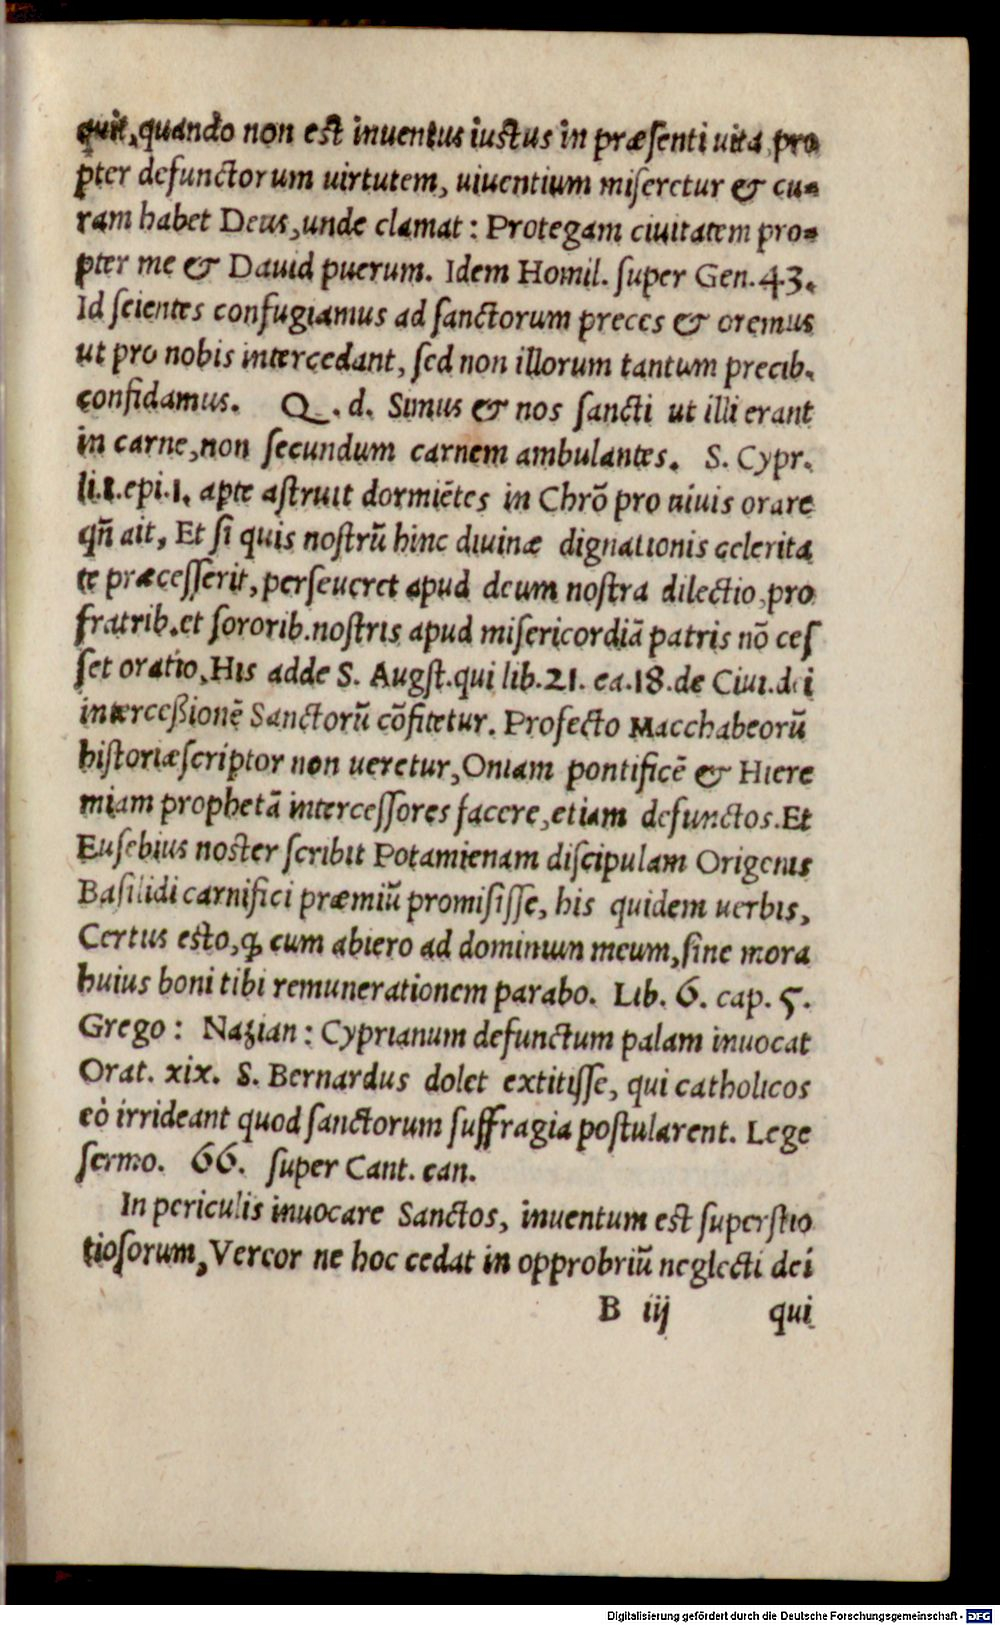 quit, quando non est inuentus iustus in præsenti uita, pro
pter defunctorum uirtutem, uiuentium miseretur & cu-
ram habet Deus, unde clamat: Protegam ciuitatem pro-
pter me & Dauid puerum. Idem Homil. super Gen. 43.
Id scientes confugiamus ad sanctorum preces & oremus
ut pro nobis intercedant, sed non illorum tantum precib.
confidamus. Q. d. Simus & nos sancti ut illi erant
in carne, non secundum carnem ambulantes. S. Cypr.
li.1.epi.1. apte astruit dormiẽtes in Chrõ pro uiuis orare
qñ ait, Et si quis nostrũ hinc diuinæ dignationis celerita
te præcesserit, perseueret apud deum nostra dilectio, pro
fratrib. et sororib. nostris apud misericordiã patris nõ ces
set oratio. His adde S. Augst. qui lib. 21. ca. 18. de Ciui. dei
intercessionẽ Sanctorũ cõfitetur. Profecto Macchabeorũ
historiæ scriptor non ueretur, Oniam pontificẽ & Hiere
miam prophetã intercessores facere, etiam defunctos. Et
Eusebius noster scribit Potamienam discipulam Origenis
Basilidi carnifici præmiũ promisisse, his quidem uerbis,
Certus esto, ꝙ cum abiero ad dominum meum, sine mora
huius boni tibi remunerationem parabo. Lib. 6. cap. 5.
Grego: Nazian: Cyprianum defunctum palam inuocat
Orat. xix. S. Bernardus dolet extitisse, qui catholicos
eò irrideant quod sanctorum suffragia postularent. Lege
sermo. 66. super Cant. can.
In periculis inuocare Sanctos, inuentum est superstio
tiosorum, Vereor ne hoc cedat in opprobriũ neglecti dei
B iij qui
Digitalisierung gefördert durch die Deutsche Forschungsgemeinschaft - DFG